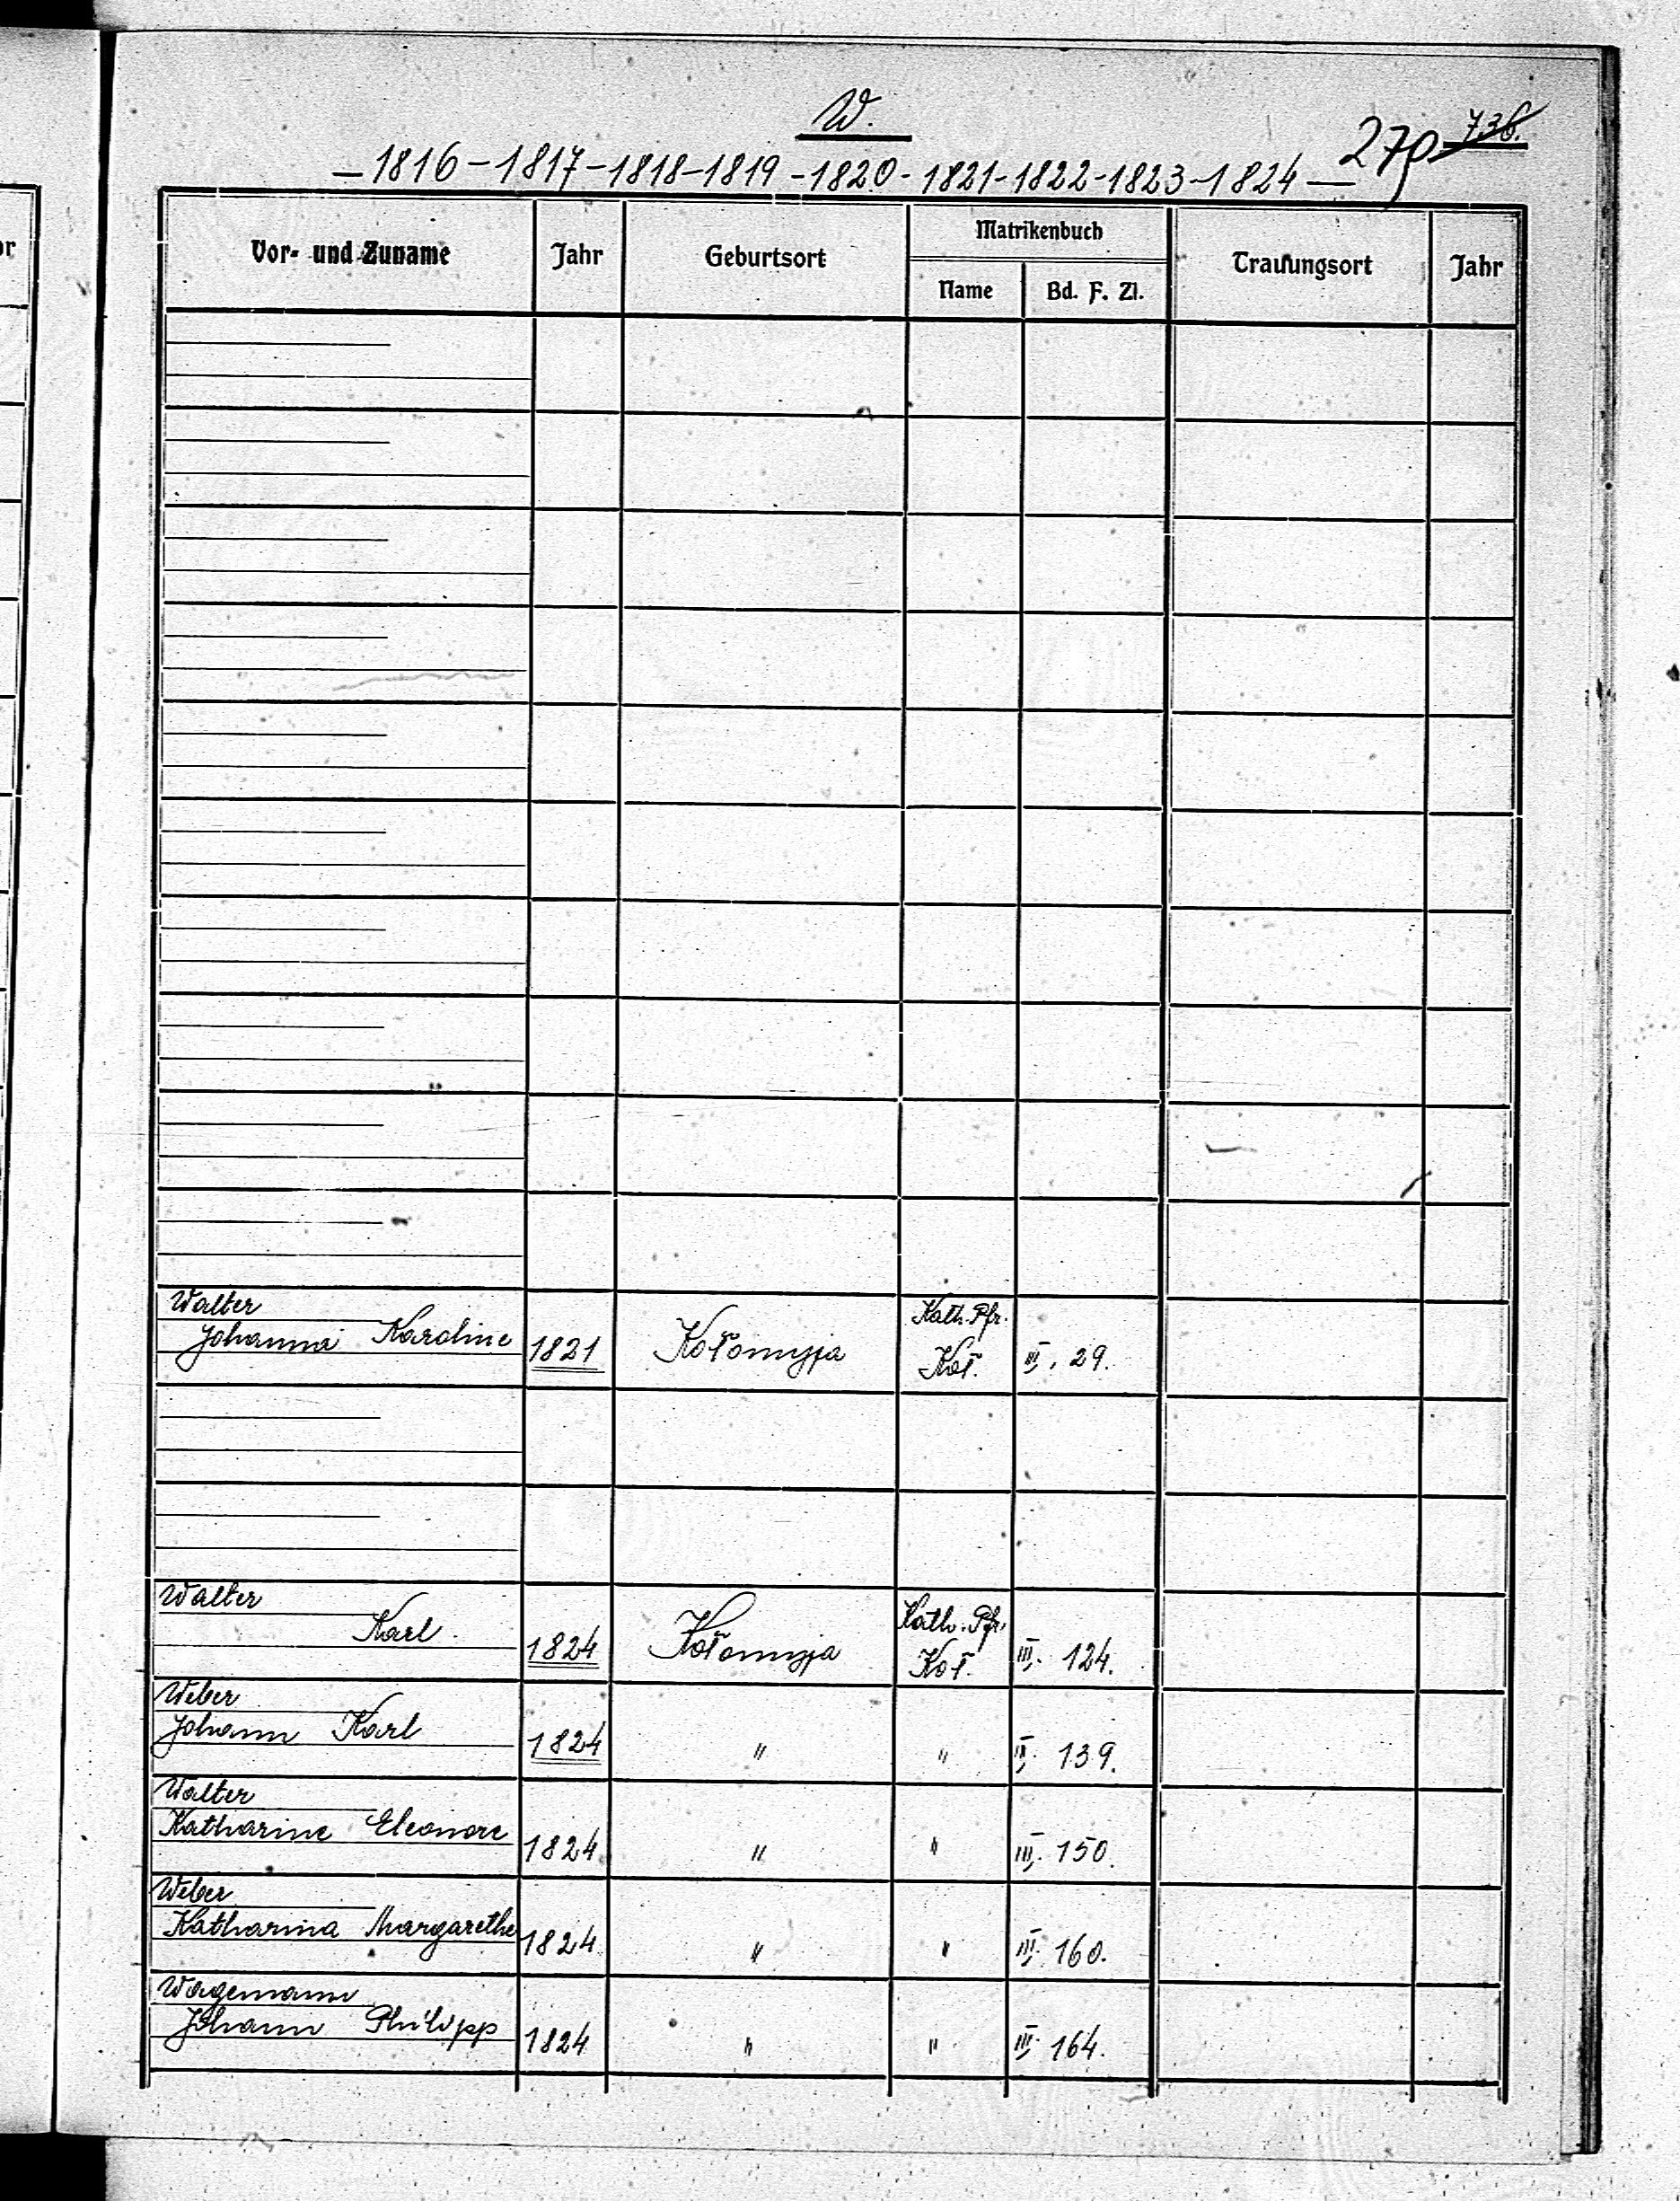 W.
736.
279
— 1816 – 1817 – 1818 – 1819 – 1820 – 1821 – 1822 – 1823 – 1824 —
Vor- und Zuname Jahr Geburtsort Matrikenbuch Trauungsort Jahr
Name Bd. F. Zl.
Walter Kath. Pfr.
Johanna Karoline 1821 Kołomyja Koł. III, 29.
Walter Kath. Pfr.
Karl 1824 Kołomyja Koł. III. 124.
Weber
Johann Karl 1824 " " 139.
Walter
Katharine Eleonore 1824 " " III. 150.
Weber
Katharina Margarethe 1824 " " III. 160.
Wagemann
Johann Philipp 1824 " " III. 164.